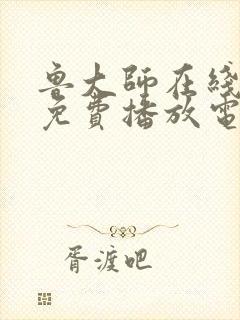 魯大師在綫
免費播放電
胥渡吧